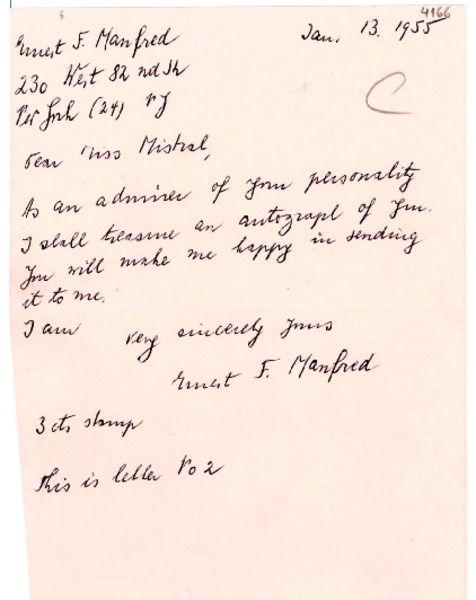 4166
Jan. 13. 1955
Ernest F. Manfred
230 West 82 nd Str
New York (24) NY
C
Dear Miss Mistral,
As an admirer of your personality
I shall treasure an autograph of you.
You will make me happy in sending
it to me.
I am very sincerely yours
Ernest F. Manfred
3 cts stamp
This is letter No 2